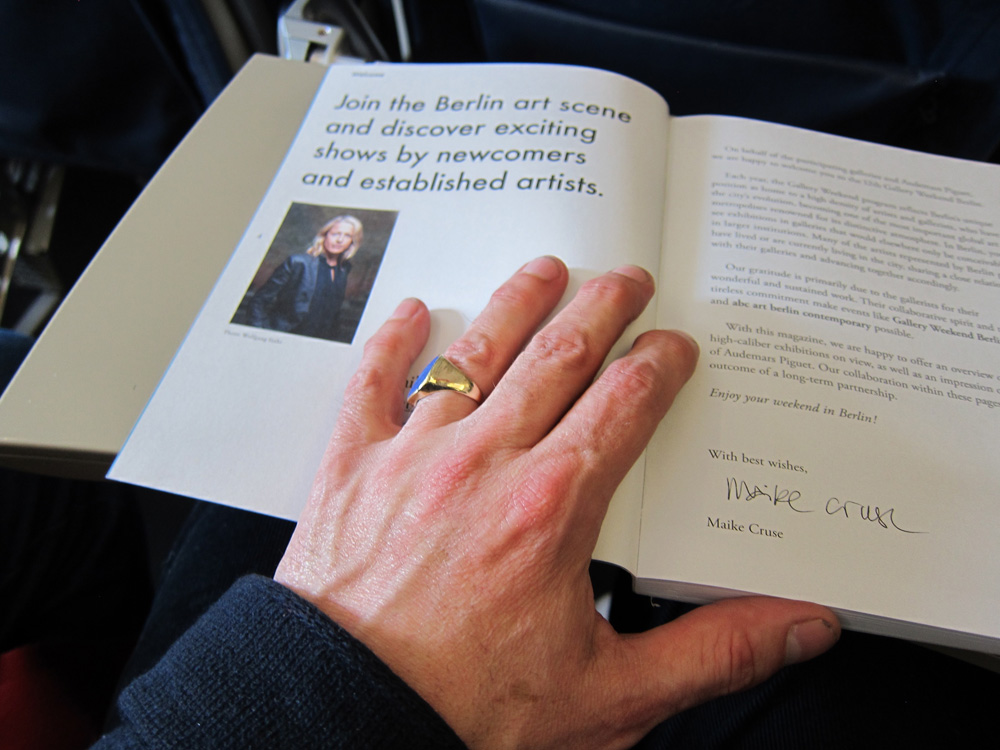 Welcome
Join the Berlin art scene
and discover exciting
shows by newcomers
and established artists.
On behalf of the participating galleries and Audemars Piguet,
we are happy to welcome you to the Gallery Weekend Berlin.
Each year, the Gallery Weekend program reflects Berlin's unique
position as home to a high density of artists and galleries, who
the city's evolution, becoming one of the most important global
metropolises renowned for its distinctive atmosphere. In Berlin,
are exhibitions in galleries that would elsewhere only be
in larger institutions. Many of the artists represented by Berlin
have lived or are currently living in the city, sharing a close
with their galleries and advancing together accordingly.
Our gratitude is primarily due to the galleries for their
wonderful and sustained work. Their collaborative spirit and
tireless commitment make events like Gallery Weekend Berlin
and abc art berlin contemporary possible.
With this magazine, we are happy to offer an overview
high-caliber exhibitions on view, as well as an impression
of Audemars Piguet. Our collaboration within these pages
outcome of a long-term partnership.
Enjoy your weekend in Berlin!
With best wishes,
Maike Cruse
Maike Cruse